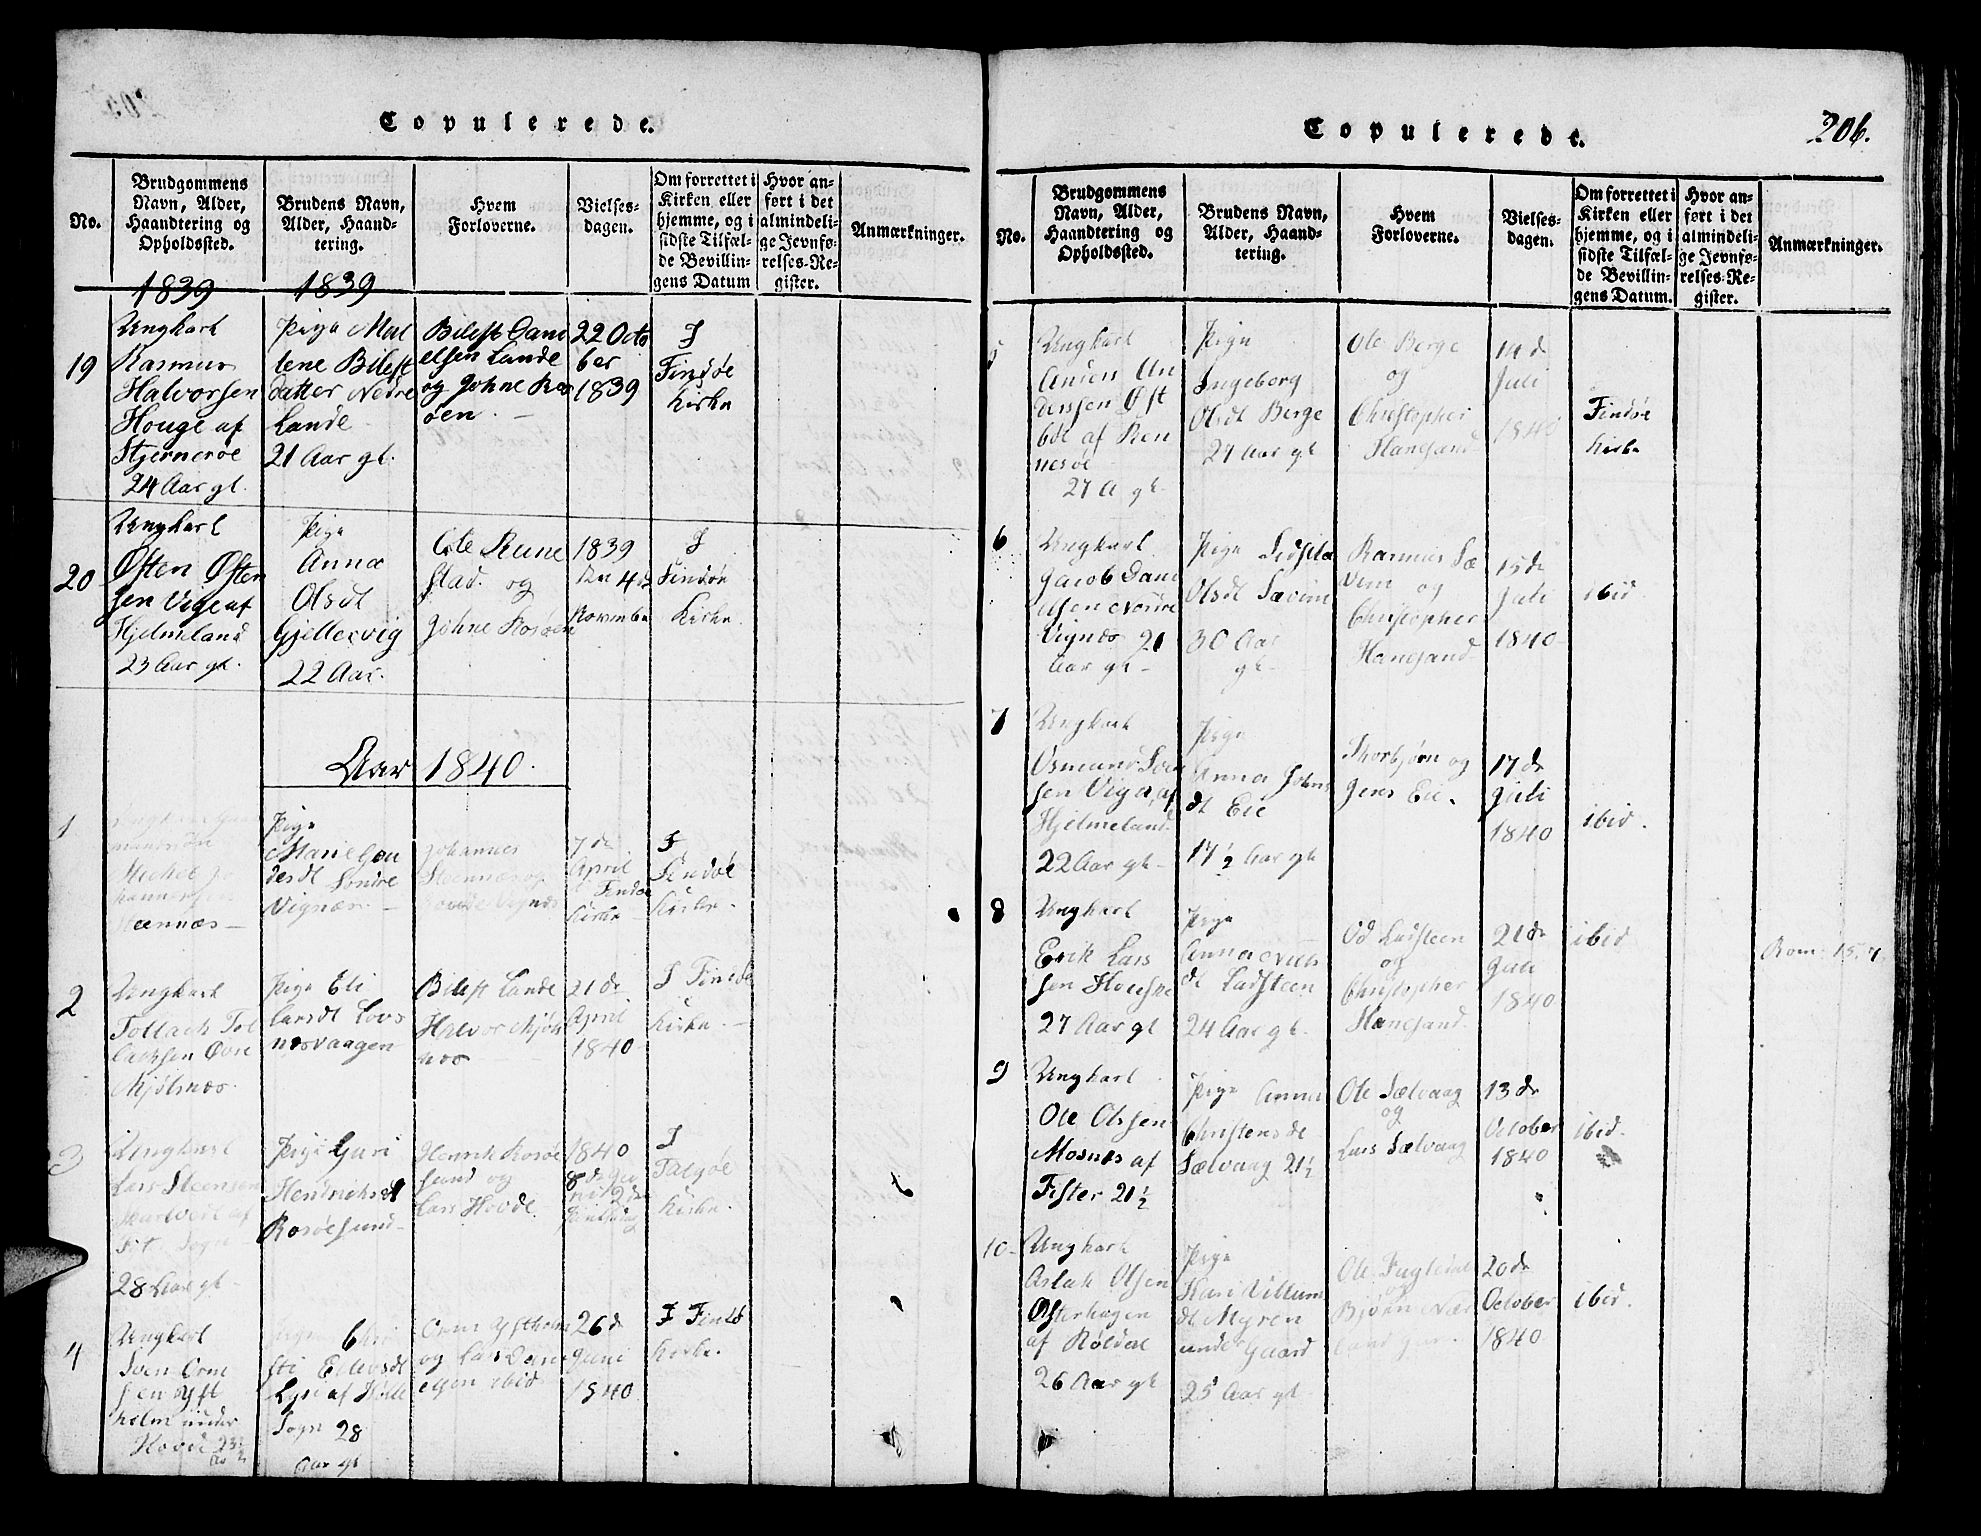 Copulerede.
No.
Brudgommens
Navn, Alder,
Haandtering og
Opholdssted.
Brudens Navn,
Alder, Haand-
tering.
Hvem
Forloverne.
Vielses-
dagen.
Om forrettet i
Kirken eller
hjemme, og i
sidste Tilfæl-
de Bevillin-
gens Datum
Hvor an-
ført i det
almindeli-
ge Jevnfø-
relses-Re-
gister.
Anmærkninger.
1839
1839
19
Ungkarl
Rasmus
Halvorsen
Houge af
Stjernerøe
24 Aar gl.
Pige Mal
lene Bilest
datter Nedre
Lande
21 Aar gl.
Bilest Dani
elsen Lande
og Johne Ros
øen. -
22 Octo
ber
1839
I
Findøe
Kirke
20
Ungkarl
Østen Østen
sen Vige af
Hjelmeland
23 Aar gl.
Pige
Anna
Olsdt
Gjellesvig
22 Aar.
Ole Rene
stad og
Johne Rosøen
1839
den 4de
November
I
Findøe
Kirke.
Aar 1840.
1
Steennæs -
Pige
Marie
Søndre
Vignæs. -
Johannes
Steennæs og
Vignæs
7de
April
Findøe
Kirke -
I
Findøe
Kirke.
2
Ungkarl
Tollach Tol
lachsen Øvre
Mjølsnæs.
Pige Eli
Larsdt Lovs
nesvaagen
Bilest Lande
Halvor Mjøls
næs
21de
April
1840
I Findøe
Kirke. -
3
Ungkarl
Lars Steensen
af
Sogn
28 Aar gl -
Pige Guri
Hendrichsdt
Rosøesund -
Henrik Rosøe
sund og
Lars Hovde
1840
8de
I
Talgøe
Kirke.
4
Ungkarl
Sven Orm
sen Øst
holm under
Hovde 23 1/2
sti
af
Sogn 28
Aar gl
Orm Østholm
og Lars Dani
elsen ibid
26de
Juni
1840
I Findø
Kirke.
Copulerede.
206.
No.
Brudgommens
Navn, Alder,
Haandtering og
Opholdssted.
Brudens Navn,
Alder, Haand-
tering.
Hvem
Forloverne.
Vielses-
dagen.
Om forrettet i
Kirken eller
hjemme, og i
sidste Tilfæl-
de Bevillin-
gens Datum.
Hvor an-
ført i det
almindeli-
ge Jevnfø-
relses-Re-
gister.
Anmærkninger.
5
Ungkarl
Anders An
derssen Øst
bøe af Ren
nesøe
27 A gl.
Pige
Ingeborg
Olsdt Berge
27 Aar gl
Ole Berge
og
Christopher
Hanesand
14de
Juli
1840
Findøe
Kirke
6
Ungkarl
Jacob Dani
elsen Nordre
Vignæs 21
Aar gl -
Pige Sidsela
Olsdt Sævim
30 Aar
gl -
Rasmus Sæ
vim og
Christopher
Hanesand
15de
Juli
1840
ibid.
7
Ungkarl
Osmund Sven
sen Viga af
Hjelmeland
22 Aar gl -
Pige
Anna Johns
dt Eie
17 1/2 Aar gl
Thorbjørn og
Jens Eie.
17de
Juli
1840
ibid.
8
Ungkarl
Erik Lars
sen Houske
27 Aar gl
Pige
Anna Nils
dt Ladsteen
24 Aar gl.
Od Ladsteen
og
Christopher
Hanesand
21de
Juli
1840
ibid
Rom: 15.7.
9
Ungkarl
Ole Olssen
Mosnes af
Fister 21 1/2
Pige Anna
Christensdt
Sælvaag 21 1/2
Ole Sælvaag
og
Lars Sælvaag
13de
October
1840
ibid.
10
Ungkarl
Aslak Olsen
Østerhagen
af Røldal
26 Aar gl
Pige
Kari Villum
dt Myren
under Gaard
25 Aar gl
Ole Fugleme
og
Bjørn Nær
land
20de
October
1840
ibid.